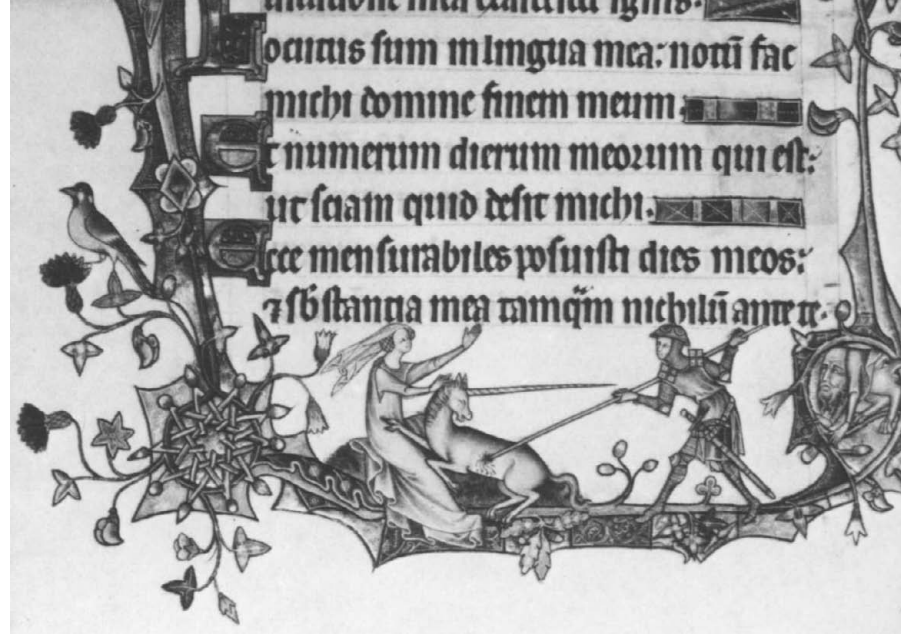 meditatione mea exardescet ignis.
Locutus sum in lingua mea: notū fac
michi domine finem meum.
Et numerum dierum meorum qui est:
ut sciam quid desit michi.
Ecce mensurabiles posuisti dies meos:
⁊ sb̄stantia mea tamq̄m nichilū ante te.